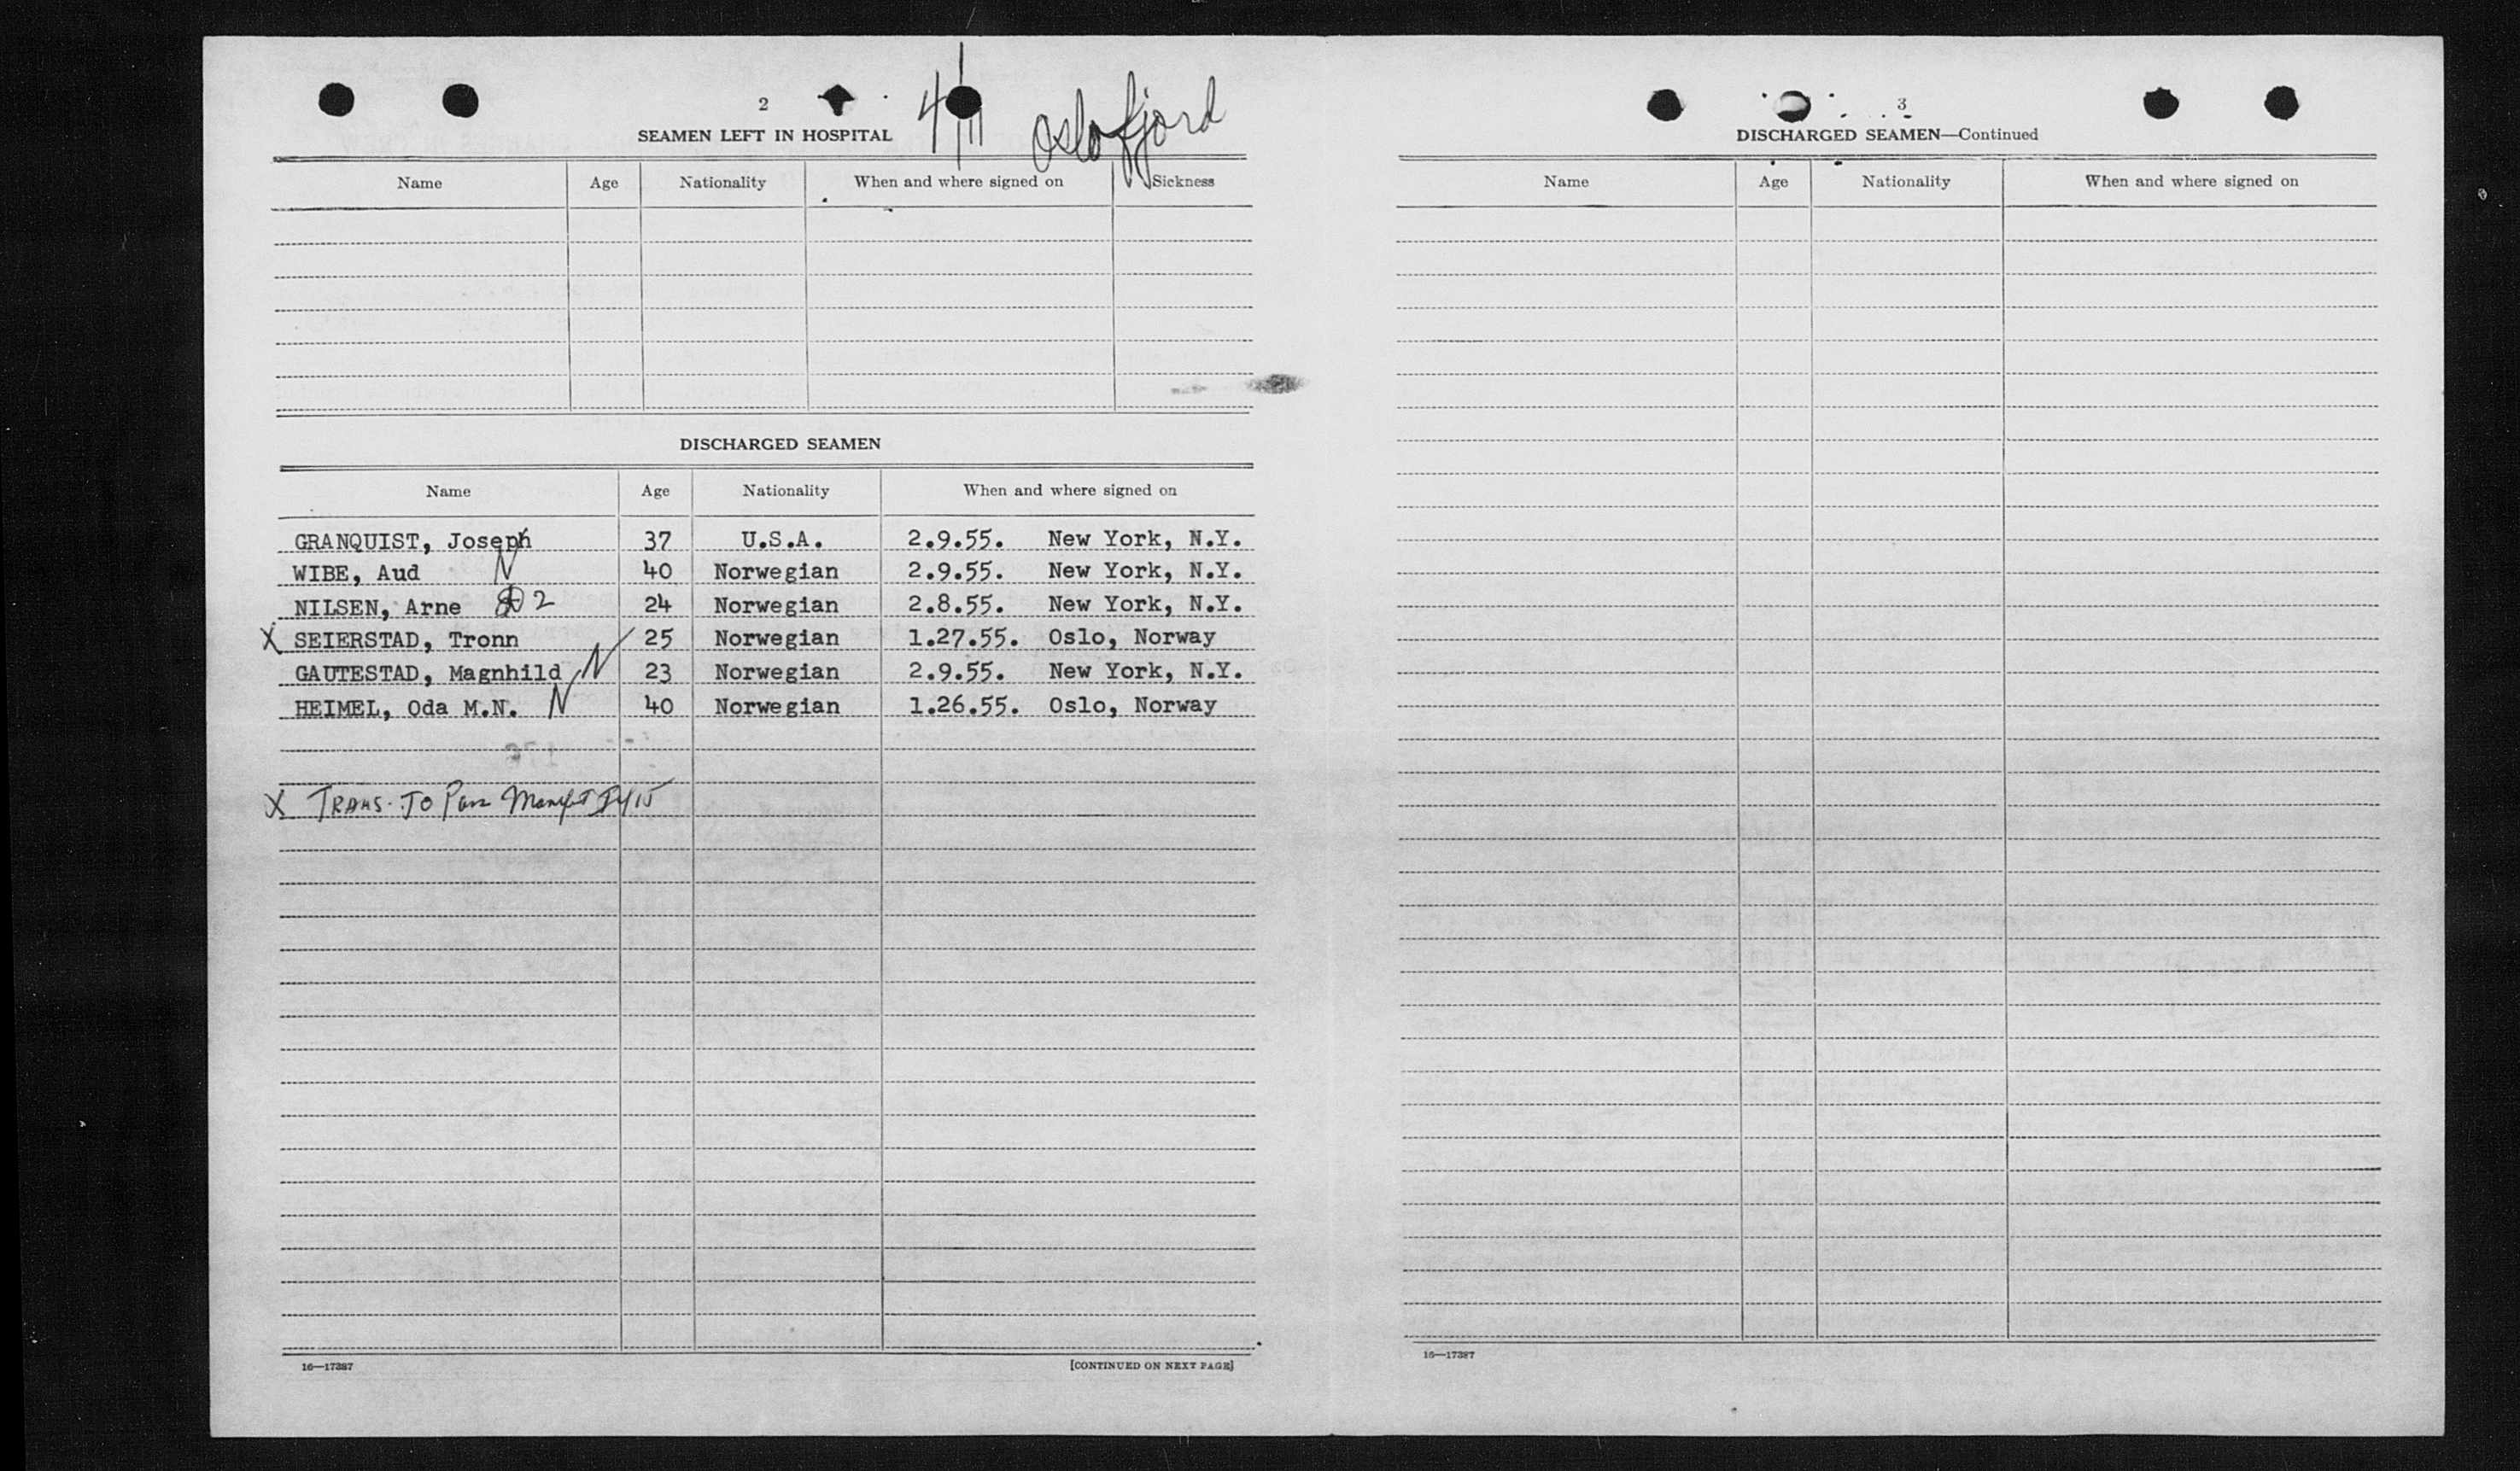 2
SEAMEN LEFT IN HOSPITAL
Oslofjord
Name Age Nationality When and where signed on Sickness
DISCHARGED SEAMEN
Name Age Nationality When and where signed on
GRANQUIST, Joseph 37 U.S.A. 2.9.55. New York, N.Y.
WIBE, Aud N 40 Norwegian 2.9.55. New York, N.Y.
NILSEN, Arne 2 24 Norwegian 2.8.55. New York, N.Y.
X SEIERSTAD, Tronn 25 Norwegian 1.27.55. Oslo, Norway
GAUTESTAD, Magnhild N 23 Norwegian 2.9.55. New York, N.Y.
HEIMEL, Oda M.N. N 40 Norwegian 1.26.55. Oslo, Norway
X TRANS. TO Pass Manifest
16—17387
[CONTINUED ON NEXT PAGE]
3
DISCHARGED SEAMEN—Continued
Name Age Nationality When and where signed on
16—17387